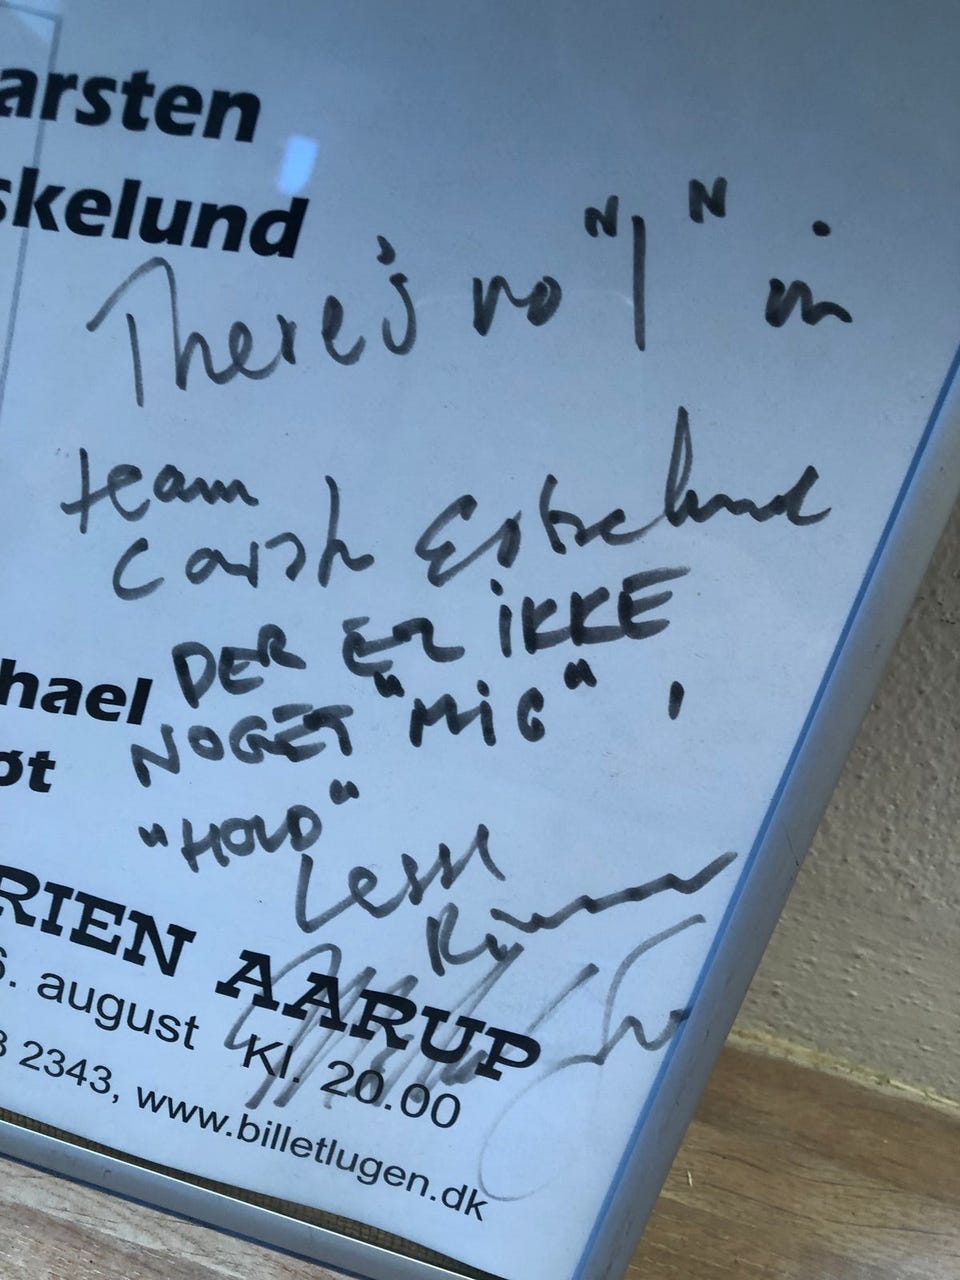 arsten
skelund
There's no "I" in
team
Carsten Eskelund
DER ER IKKE
NOGET "MIG" I
"HOLD"
hael
øt
RIEN AARUP
6. august Kl. 20.00
8 2343, www.billetlugen.dk